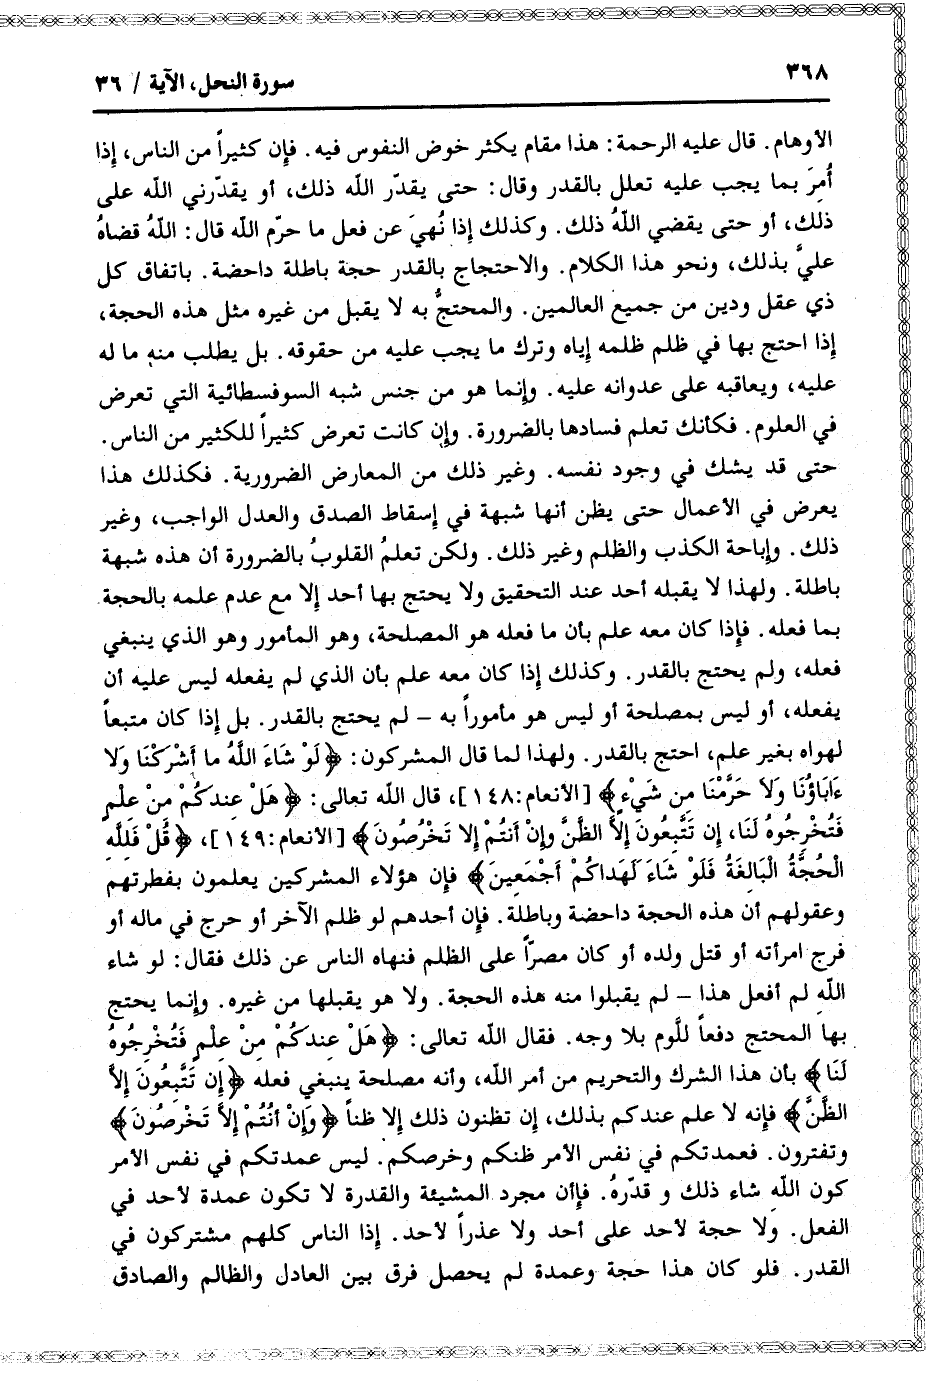 ٣٦٨
سورة النحل، الآية / ٣٦
الأوهام. قال عليه الرحمة: هذا مقام يكثر خوض النفوس فيه. فإن كثيراً من الناس، إذا
أُمِرَ بما يجب عليه تعلل بالقدر وقال: حتى يقدّر الله ذلك، أو يقدّرني الله على
ذلك، أو حتى يقضي اللهُ ذلك. وكذلك إذا نُهيَ عن فعل ما حرّم الله قال: اللهُ قضاهُ
عليَّ بذلك، ونحو هذا الكلام. والاحتجاج بالقدر حجة باطلة داحضة. باتفاق كل
ذي عقل ودين من جميع العالمين. والمحتجُّ به لا يقبل من غيره مثل هذه الحجة،
إذا احتج بها في ظلم ظلمه إياه وترك ما يجب عليه من حقوقه. بل يطلب منه ما له
عليه، ويعاقبه على عدوانه عليه. وإنما هو من جنس شبه السوفسطائية التي تعرض
في العلوم. فكأنك تعلم فسادها بالضرورة. وإن كانت تعرض كثيراً للكثير من الناس.
حتى قد يشك في وجود نفسه. وغير ذلك من المعارض الضرورية. فكذلك هذا
يعرض في الأعمال حتى يظن أنها شبهة في إسقاط الصدق والعدل الواجب، وغير
ذلك. وإباحة الكذب والظلم وغير ذلك. ولكن تعلمُ القلوبُ بالضرورة أن هذه شبهة
باطلة. ولهذا لا يقبله أحد عند التحقيق ولا يحتج بها أحد إلا مع عدم علمه بالحجة
بما فعله. فإذا كان معه علم بأن ما فعله هو المصلحة، وهو المأمور وهو الذي ينبغي
فعله، ولم يحتج بالقدر. وكذلك إذا كان معه علم بأن الذي لم يفعله ليس عليه أن
يفعله، أو ليس بمصلحة أو ليس هو مأموراً به – لم يحتج بالقدر. بل إذا كان متبعاً
لهواه بغير علم، احتج بالقدر. ولهذا لما قال المشركون: ﴿لَوْ شَاءَ اللَّهُ ما أَشْرَكْنَا وَلا
ءَابَاؤُنَا وَلاَ حَرَّمْنَا مِن شَيْءٍ﴾ [الأنعام:١٤٨]، قال الله تعالى: ﴿هَلْ عِندَكُمْ مِنْ عِلْمٍ
فَتُخْرِجُوهُ لَنَا، إِن تَتَّبِعُونَ إِلاَّ الظَّنَّ وإِنْ أَنتُمْ إِلا تَخْرُصُونَ﴾ [الأنعام:١٤٩]، ﴿قُلْ فَلِلَّهِ
الْحُجَّةُ الْبَالِغَةُ فَلَوْ شَاءَ لَهَدَاكُمْ أَجْمَعِينَ﴾ فإن هؤلاء المشركين يعلمون بفطرتهم
وعقولهم أن هذه الحجة داحضة وباطلة. فإن أحدهم لو ظلم الآخر أو حرج في ماله أو
فرج امرأته أو قتل ولده أو كان مصرّاً على الظلم فنهاه الناس عن ذلك فقال: لو شاء
الله لم أفعل هذا – لم يقبلوا منه هذه الحجة. ولا هو يقبلها من غيره. وإنما يحتج
بها المحتج دفعاً للَّوم بلا وجه. فقال الله تعالى: ﴿هَلْ عِندَكُمْ مِنْ عِلْمٍ فَتُخْرِجُوهُ
لَنَا﴾ بأن هذا الشرك والتحريم من أمر الله، وأنه مصلحة ينبغي فعله ﴿إِن تَتَّبِعُونَ إِلاَّ
الظَّنَّ﴾ فإنه لا علم عندكم بذلك، إن تظنون ذلك إلا ظناً ﴿وَإِنْ أَنْتُمْ إِلاَّ تَخْرصُونَ﴾
وتفترون. فعمدتكم في نفس الأمر ظنكم وخرصكم. ليس عمدتكم في نفس الأمر
كون الله شاء ذلك و قدّرهُ. فإأن مجرد المشيئة والقدرة لا تكون عمدة لأحد في
الفعل. ولا حجة لأحد على أحد ولا عذراً لأحد. إذا الناس كلهم مشتركون في
القدر. فلو كان هذا حجة وعمدة لم يحصل فرق بين العادل والظالم والصادق